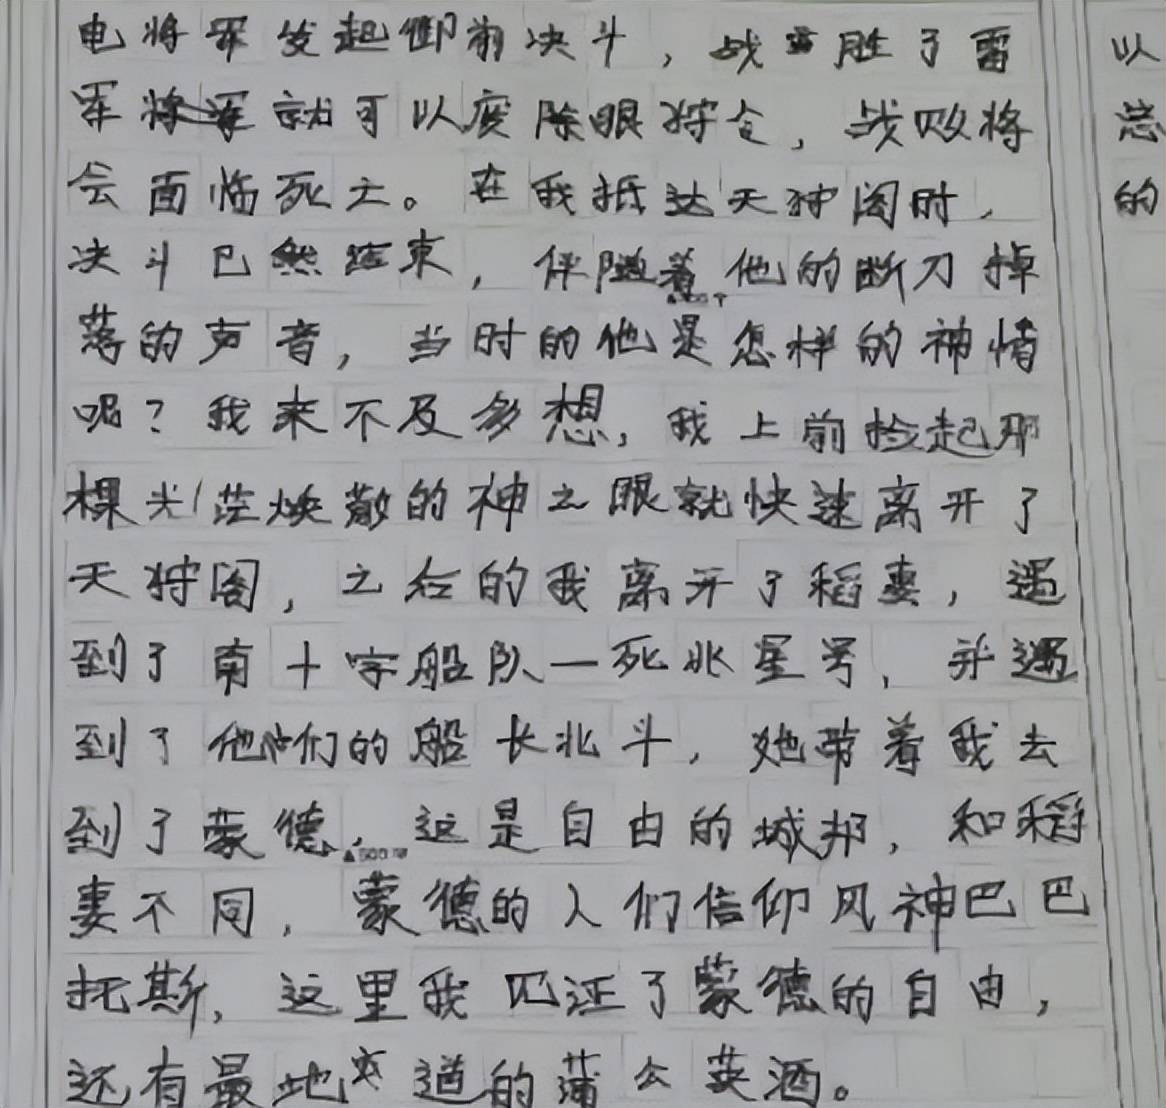 电将军发起御前决斗，战胜了雷
军就可以废除眼狩令，战败将
会面临死亡。在我抵达天狩阁时，
决斗已然结束，伴随着他的断刀掉
落的声音，当时的他是怎样的神情
呢？我来不及多想，我上前捡起那
棵光茫焕散的神之眼就快速离开了
天狩阁，之后的我离开了稻妻，遇
到了南十字船队一死兆星号，并遇
到了他们的船长北斗，她带着我去
到了蒙德，这是自由的城邦，和稻
妻不同，蒙德的人们信仰风神巴巴
托斯，这里我见证了蒙德的自由，
还有最地道的蒲公英酒。
以
总
的